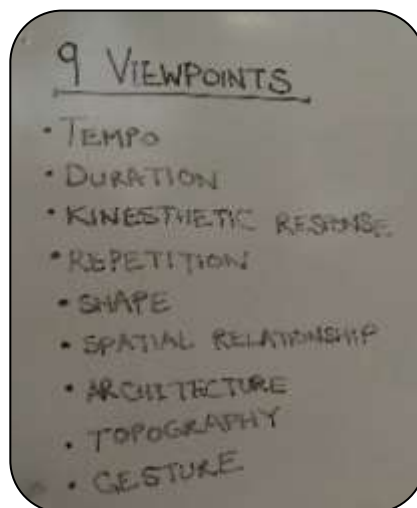 9 VIEWPOINTS
• TEMPO
• DURATION
• KINESTHETIC RESPONSE
• REPETITION
• SHAPE
• SPATIAL RELATIONSHIP
• ARCHITECTURE
• TOPOGRAPHY
• GESTURE